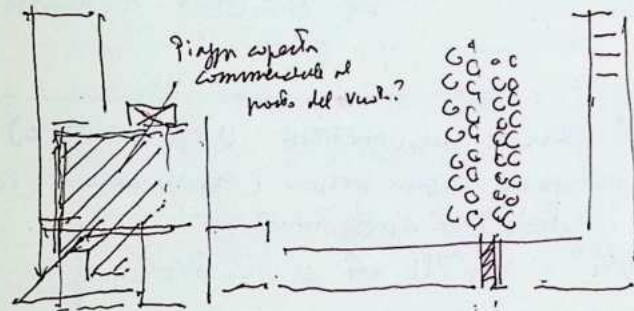 Piazza coperta
commerciale al
posto del vuoto?